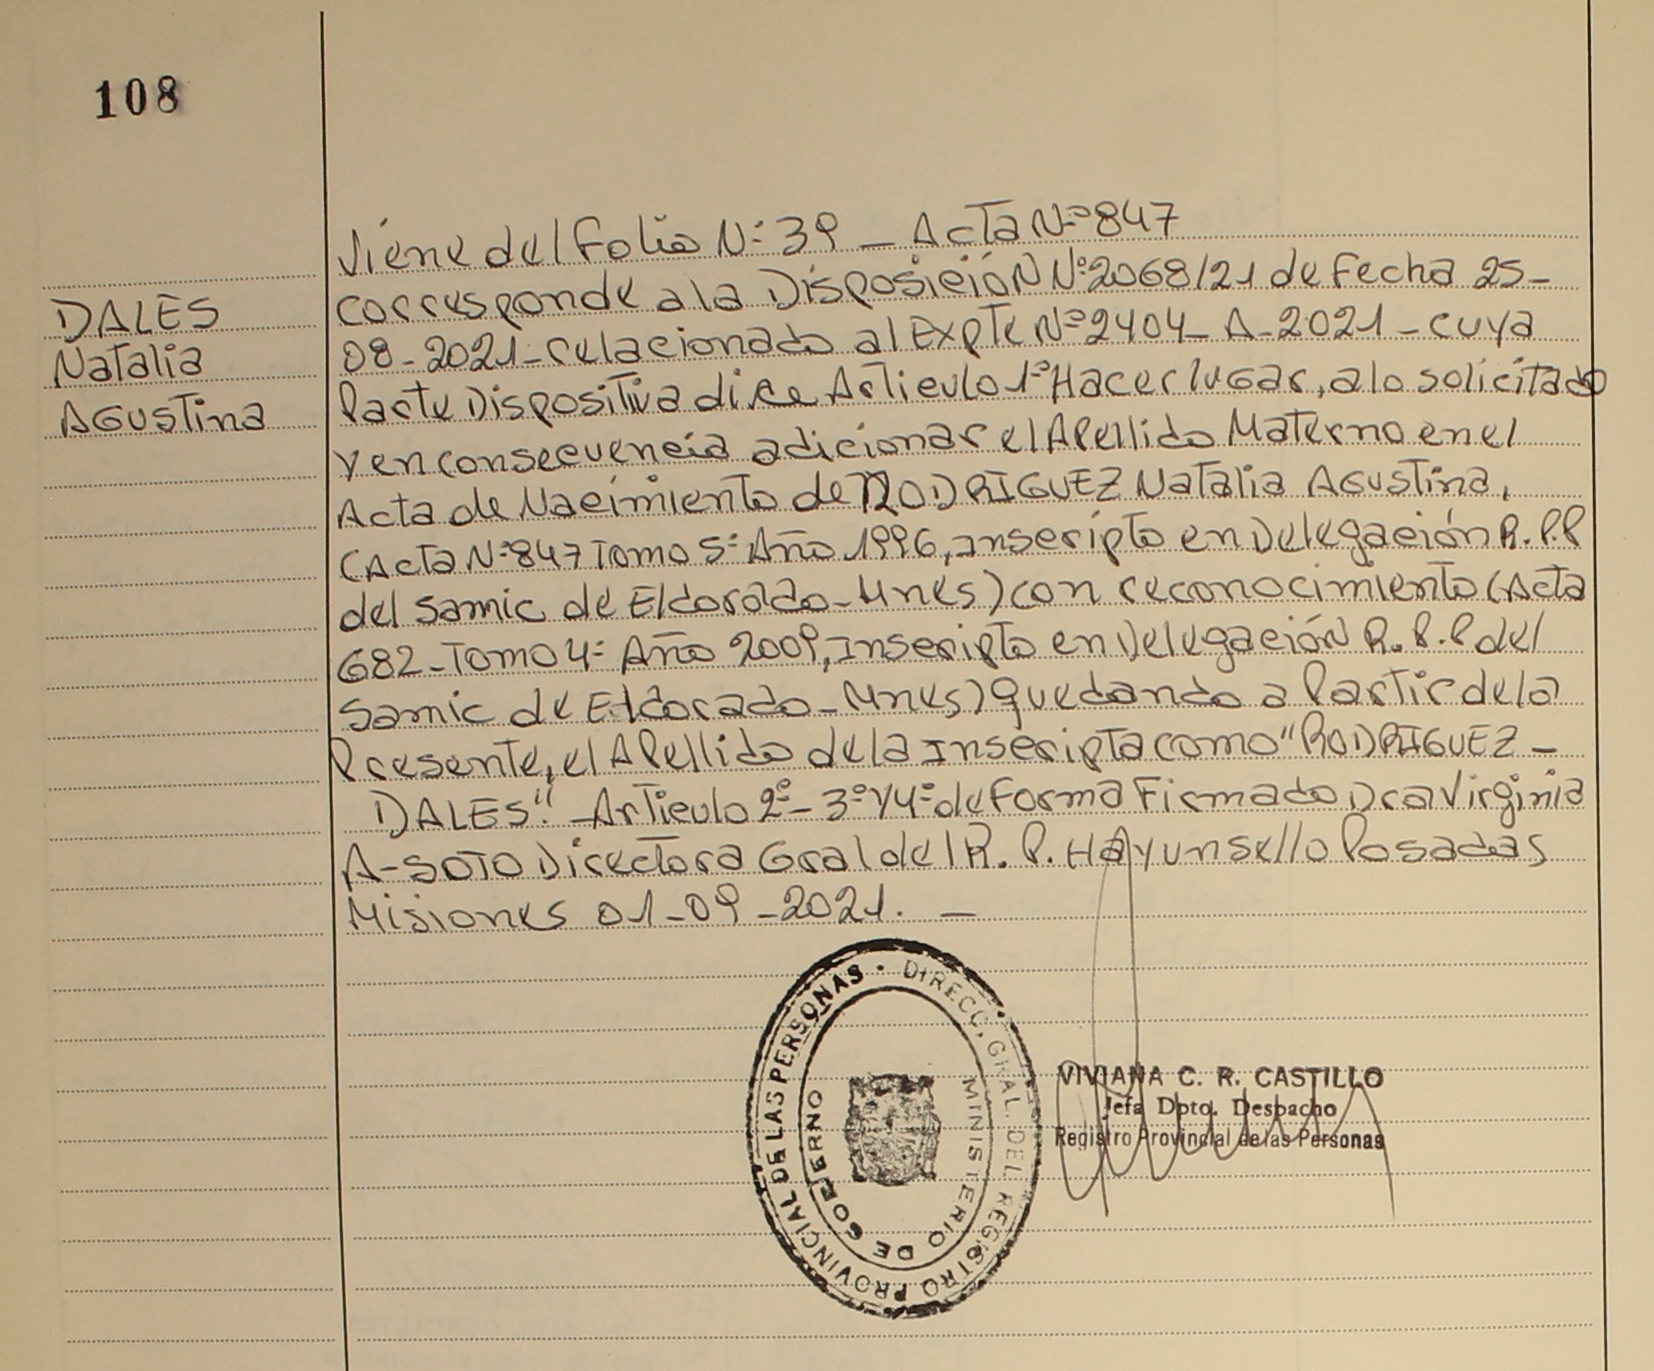 108
Viene del folio Nº 39 _ Acta Nº 847
corresponde a la Disposición Nº 2068/21 de fecha 25-
08-2021-relacionado al Expte Nº 2404_A-2021-cuya
Parte Dispositiva dice Artículo 1º Hacer lugar, a lo solicitado
y en consecuencia adicionar el Apellido Materno en el
Acta de Nacimiento de RODRIGUEZ Natalia Agustina,
(Acta Nº 847 Tomo 5º Año 1996, Inscripto en Delegación R.P.P
del Samic de Eldorado-Mnes) con reconocimiento (Acta
682-Tomo 4º Año 2009, Inscripto en Delegación R.P.P del
Samic de Eldorado-Mnes) quedando a Partir de la
Presente, el Apellido de la Inscripta como "RODRIGUEZ -
DALES". Artículo 2º-3º y 4º de forma Firmado Dra Virginia
A-SOTO Directora Gral del R.P. Hay un sello Posadas
Misiones 01-09-2021. _
DALES
Natalia
Agustina
DIRECC. GRAL. DEL REGISTRO PROVINCIAL DE LAS PERSONAS ·
MINISTERIO DE GOBIERNO
VIVIANA C. R. CASTILLO
Jefa Dpto. Despacho
Registro Provincial de las Personas